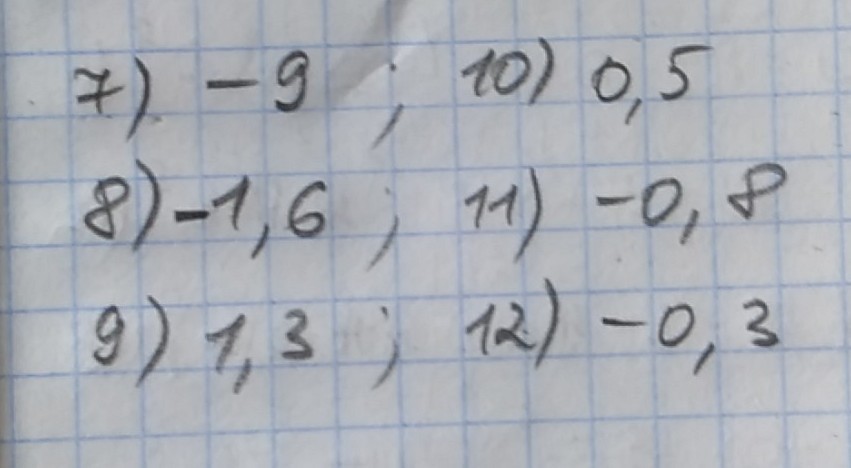 7) -9 ; 10) 0,5
8) -1,6 ; 11) -0,8
9) 1,3 ; 12) -0,3